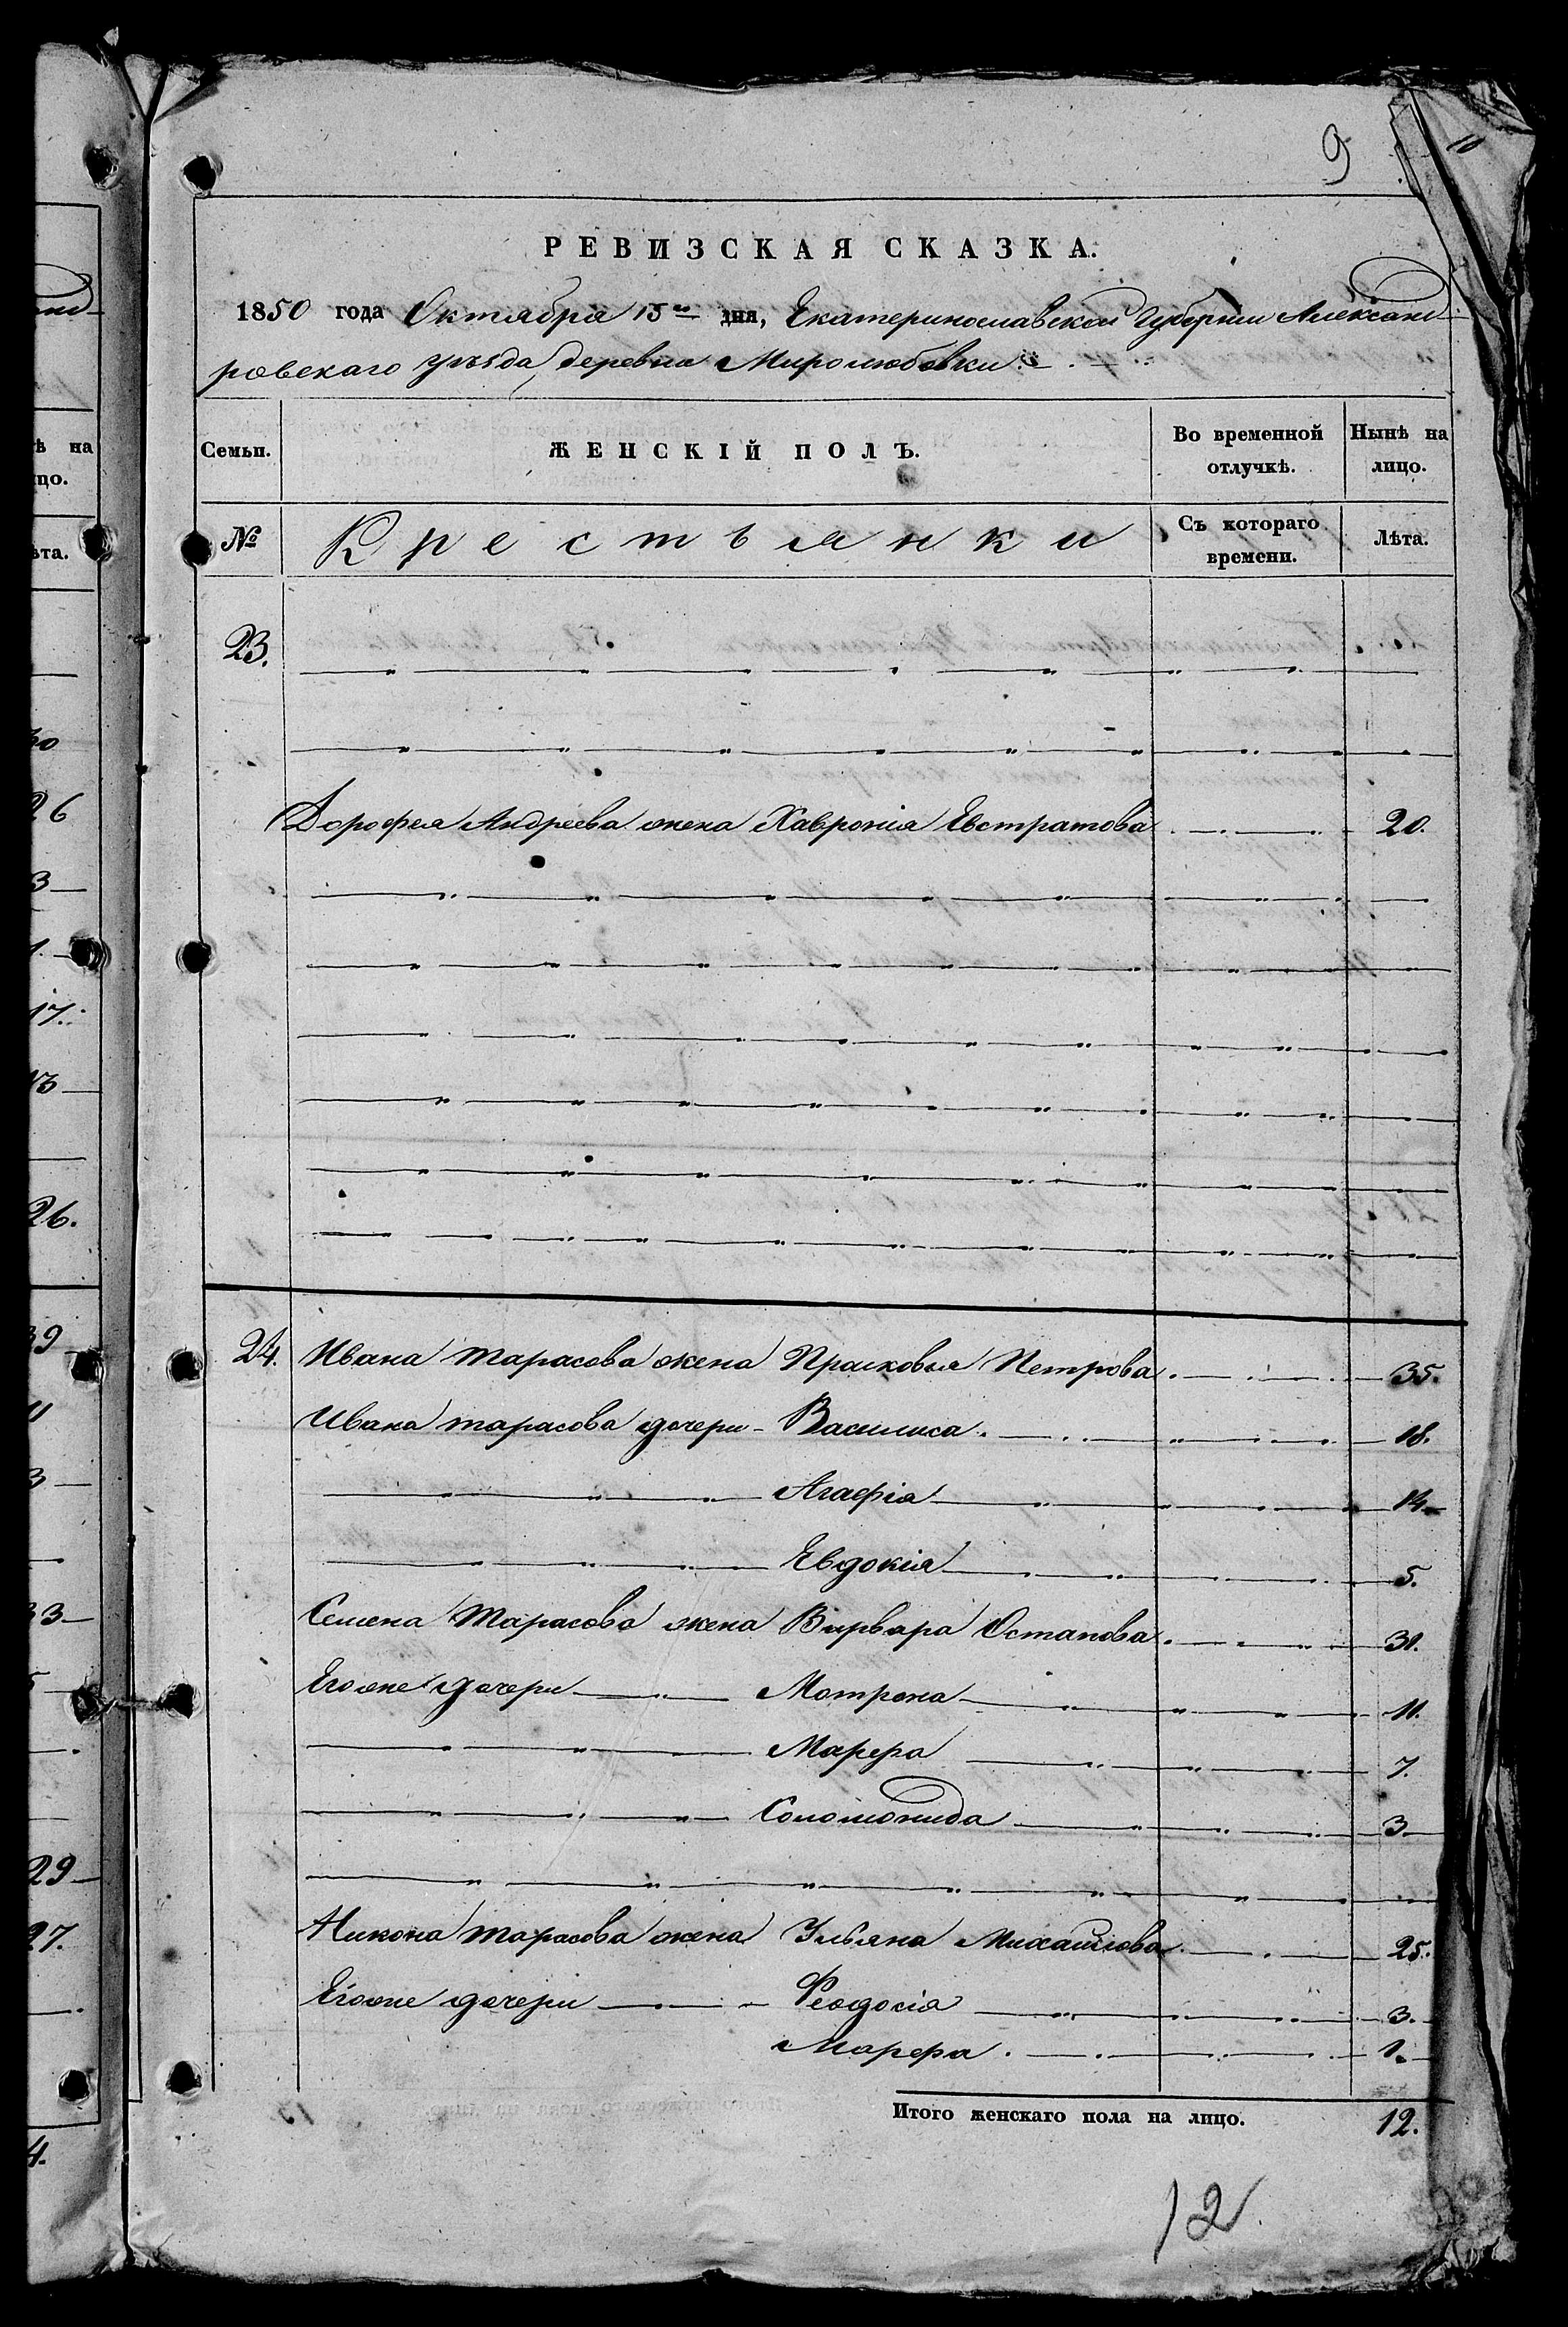 9
РЕВИЗСКАЯ СКАЗКА.
1850 года Октября 15го дня, Екатеринославской Губернии Александ-
ровскаго уѣзда, деревни Миролюбовки
Семьи. ЖЕНСКІЙ ПОЛЪ. Во временной отлучкѣ. Нынѣ на лицо.
№ Крестьянки Съ котораго времени. Лѣта.
23.
Дорофея Андреева жена Хавронія Евстратова 20.
24. Ивана Тарасова жена Прасковья Петрова 35.
Ивана Тарасова дочери Василиса 18.
Агафія 14
Евдокія 5.
Семена Тарасова жена Варвара Остапова 31.
Егоже дочери Мотрона 11.
Марфа 7.
Соломонида 3
Никона Тарасова жена Ульяна Михайлова 25.
Егоже дочери Феодосія 3.
Марфа 1.
Итого женскаго пола на лицо. 12.
12